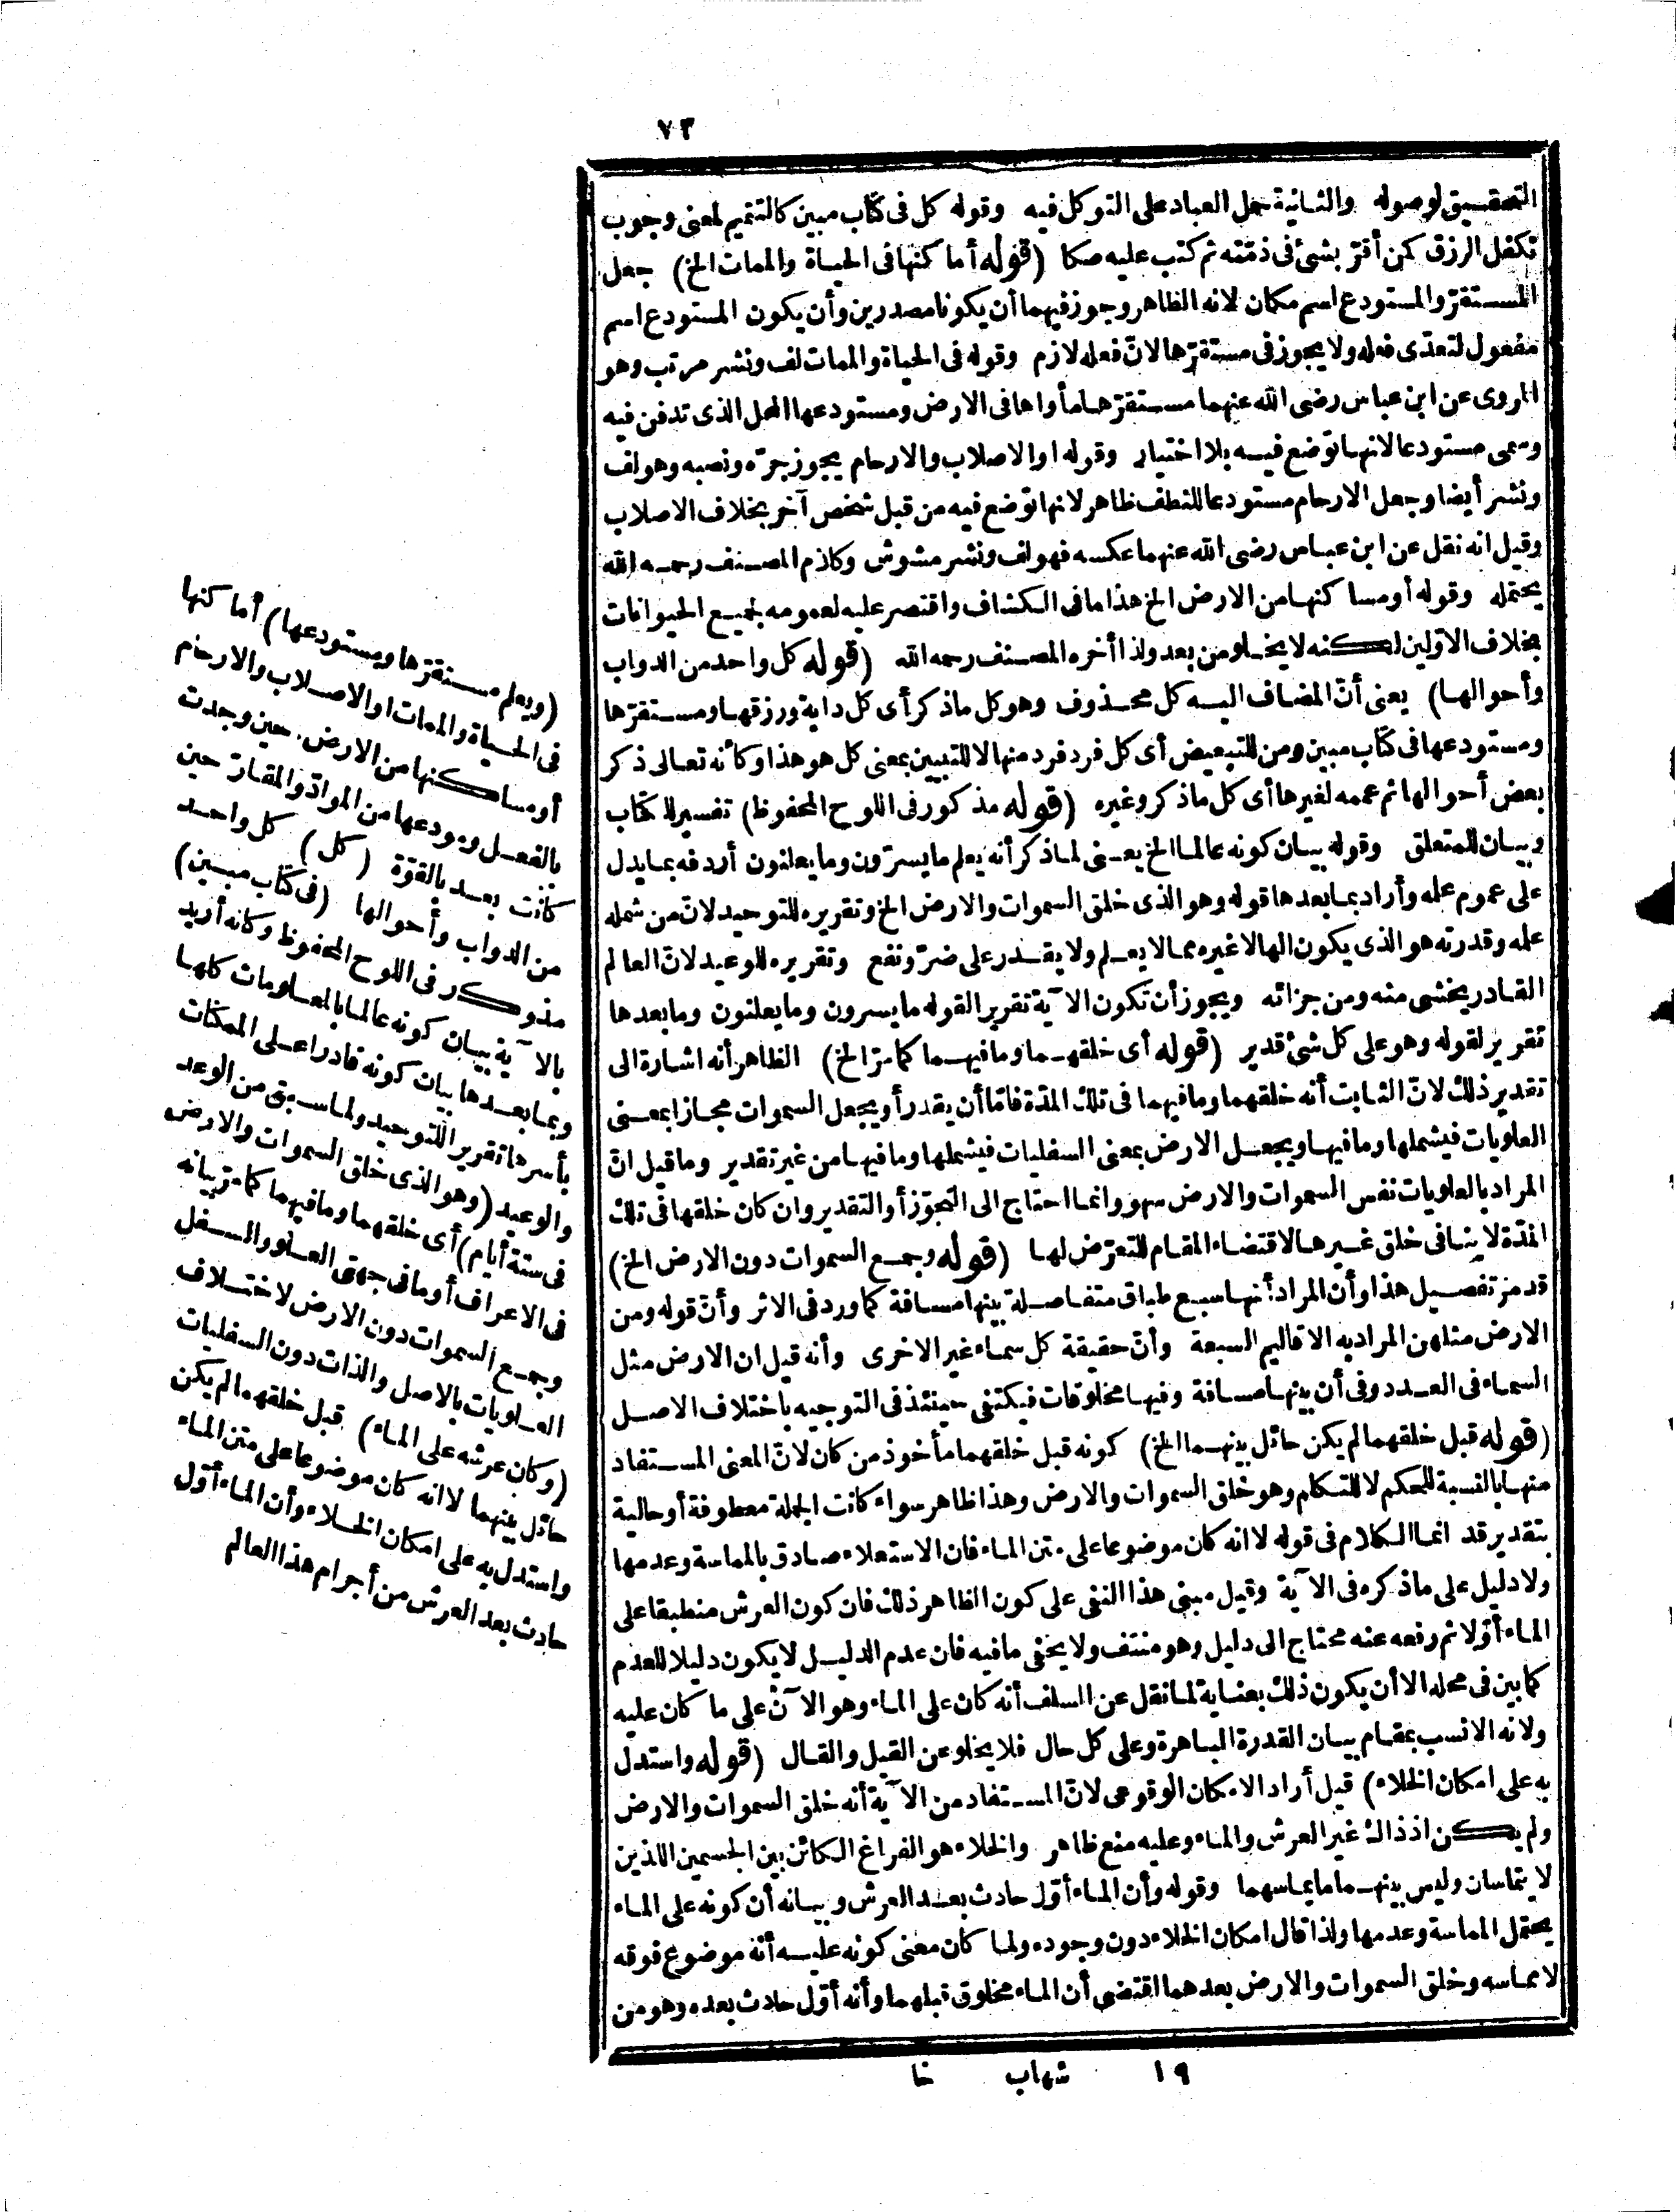 ٧٣
التحقيق لوصوله والثانية حمل العباد على التوكل فيه وقوله كل فى كتاب مبين كالتتميم لمعنى وجوب
تكفل الرزق كمن أقرّ بشئ فى ذمّته ثم كتب عليه صكا (قوله أماكنها فى الحياة والممات الخ) جعل
المستقرّ والمستودع اسم مكان لانه الظاهر وجوز فيهما أن يكونا مصدرين وأن يكون المستودع اسم
مفعول لتعدّى فعله ولا يجوز فى مستقرّها لانّ فعله لازم وقوله فى الحياة والممات لف ونشر مرتب وهو
المروى عن ابن عباس رضى الله عنهما مستقرّها مأواها فى الارض ومستودعها المحل الذى تدفن فيه
وسمى مستودعا لانها توضع فيه بلا اختيار وقوله او الاصلاب والارحام يجوز جرّه ونصبه وهو لف
ونشر أيضا وجعل الارحام مستودعا للنطف ظاهر لانها توضع فيه من قبل شخص آخر بخلاف الاصلاب
وقيل انه نقل عن ابن عباس رضى الله عنهما عكسه فهو لف ونشر مشوش وكلام المصنف رحمه الله
يحتمله وقوله أو مساكنها من الارض الخ هذا ما فى الكشاف واقتصر عليه لعمومه لجميع الحيوانات
بخلاف الاوّلين لكنه لا يخلو من بعد ولذا أخره المصنف رحمه الله (قوله كل واحد من الدواب
وأحوالها) يعنى أنّ المضاف اليه كل محذوف وهو كل ما ذكر أى كل دابة ورزقها ومستقرّها
ومستودعها فى كتاب مبين ومن للتبعيض أى كل فرد فرد منها لا للتبيين بمعنى كل هو هذا وكأنه تعالى ذكر
بعض أحوالها ثم عممه لغيرها أى كل ما ذكر وغيره (قوله مذكور فى اللوح المحفوظ) تفسير للكتاب
وبيان للمتعلق وقوله بيان كونه عالما الخ يعنى لما ذكر أنه يعلم ما يسرّون وما يعلنون أردفه بما يدل
على عموم علمه وأراد بما بعدها قوله وهو الذى خلق السموات والارض الخ وتقريره للتوحيد لانّ من شمله
علمه وقدرته هو الذى يكون الها لا غيره مما لا يعلم ولا يقدر على ضرّ ونفع وتقريره للوعيد لانّ العالم
القادر يخشى منه ومن جزائه ويجوز أن تكون الآية تقريرا لقوله ما يسرون وما يعلنون وما بعدها
تقرير لقوله وهو على كل شئ قدير (قوله أى خلقهما وما فيهما كما مرّ الخ) الظاهر أنه اشارة الى
تقدير ذلك لانّ الثابت أنه خلقهما وما فيهما فى تلك المدّة فامّا أن يقدر أو يجعل السموات مجازا بمعنى
العلويات فيشملها وما فيها ويجعل الارض بمعنى السفليات فيشملها وما فيها من غير تقدير وما قيل انّ
المراد بالعلويات نفس السموات والارض سهو وانما احتاج الى التجوّز أو التقدير وان كان خلقها فى تلك
المدّة لا ينافى خلق غيرها لاقتضاء المقام للتعرّض لها (قوله وجمع السموات دون الارض الخ)
قد مرّ تفصيل هذا وأن المراد أنها سبع طباق متفاصلة بينها مسافة كما ورد فى الاثر وأنّ قوله ومن
الارض مثلهن المراد به الاقاليم السبعة وأنّ حقيقة كل سماء غير الاخرى وأنه قيل ان الارض مثل
السماء فى العدد وفى أن بينها مسافة وفيها مخلوقات فيكتفى حينئذ فى التوجيه باختلاف الاصل
(قوله قبل خلقهما لم يكن حائل بينهما الخ) كونه قبل خلقهما مأخوذ من كان لانّ المعنى المستفاد
منها بالنسبة للحكم لا للتكلم وهو خلق السموات والارض وهذا ظاهر سواء كانت الجملة معطوفة أو حالية
بتقدير قد انما الكلام فى قوله لا انه كان موضوعا على متن الماء فان الاستعلاء صادق بالمماسة وعدمها
ولا دليل على ما ذكره فى الآية وقيل مبنى هذا النفى على كون الظاهر ذلك فان كون العرش منطبقا على
الماء أوّلا ثم رفعه عنه محتاج الى دليل وهو منتف ولا يخفى ما فيه فان عدم الدليل لا يكون دليلا للعدم
كما بين فى محله الا أن يكون ذلك بعناية لما نقل عن السلف أنه كان على الماء وهو الآن على ما كان عليه
ولانه الانسب بمقام بيان القدرة الباهرة وعلى كل حال فلا يخلو عن القيل والقال (قوله واستدل
به على امكان الخلاء) قيل أراد الامكان الوقوعى لانّ المستفاد من الآية أنه خلق السموات والارض
ولم يكن اذ ذاك غير العرش والماء وعليه منع ظاهر والخلاء هو الفراغ الكائن بين الجسمين اللذين
لا يتماسان وليس بينهما ما يماسهما وقوله وأن الماء أوّل حادث بعد العرش وبيانه أن كونه على الماء
يحتمل المماسة وعدمها ولذا قال امكان الخلاء دون وجوده ولما كان معنى كونه عليه أنه موضوع فوقه
لا مماسه وخلق السموات والارض بعدهما اقتضى أن الماء مخلوق قبلهما وأنه أوّل حادث بعده وهو من
١٩ شهاب خا
(ويعلم مستقرّها ومستودعها) أماكنها
فى الحياة والممات او الاصلاب والارحام
أو مساكنها من الارض حين وجدت
بالفعل ومودعها من الموادّ والمقارّ حين
كانت بعد بالقوّة (كل) كل واحد
من الدواب وأحوالها (فى كتاب مبين)
مذكور فى اللوح المحفوظ وكانه أريد
بالآية بيان كونه عالما بالمعلومات كلها
وبما بعدها بيان كونه قادرا على الممكنات
بأسرها تقريرا للتوحيد ولما سبق من الوعد
والوعيد (وهو الذى خلق السموات والارض
فى ستة أيام) أى خلقهما وما فيهما كما مرّ بيانه
فى الاعراف أو ما فى جهتى العلو والسفل
وجمع السموات دون الارض لاختلاف
العلويات بالاصل والذات دون السفليات
(وكان عرشه على الماء) قبل خلقهما لم يكن
حائل بينهما لا انه كان موضوعا على متن الماء
واستدل به على امكان الخلاء وأن الماء أوّل
حادث بعد العرش من أجرام هذا العالم